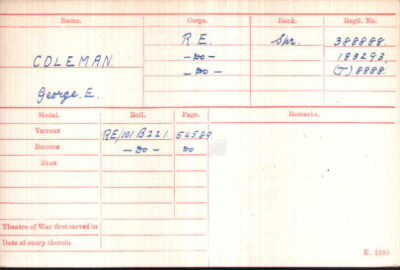 Name. Corps. Rank. Regtl. No.
R.E. Spr. 388888.
COLEMAN. -DO- 188293
-DO- (T) 8888.
George. E.
Medal. Roll. Page. Remarks.
VICTORY RE/101 B221. 54589
BRITISH -DO- DO
STAR
Theatre of War first served in
Date of entry therein
K. 1380